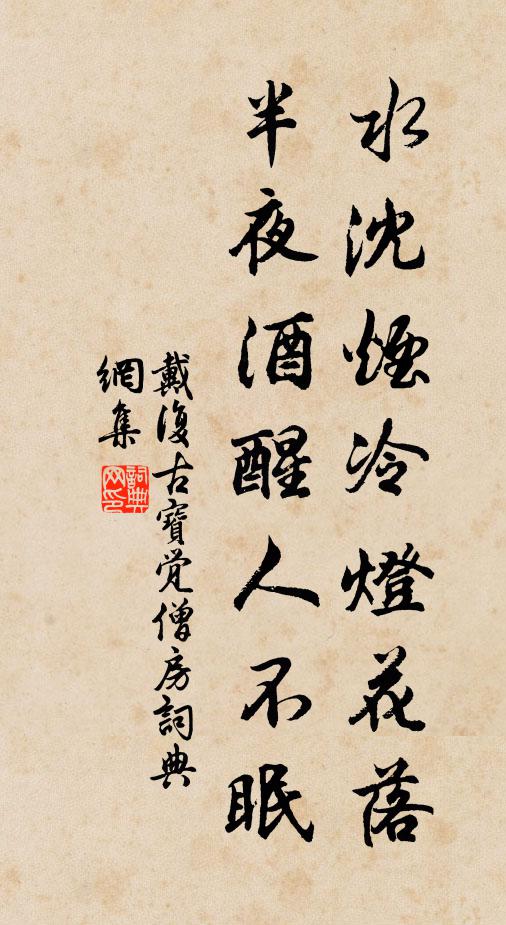 水沈煙冷燈花落
半夜酒醒人不眠
戴復古寶覺僧房詞典
網集
詞典
网印